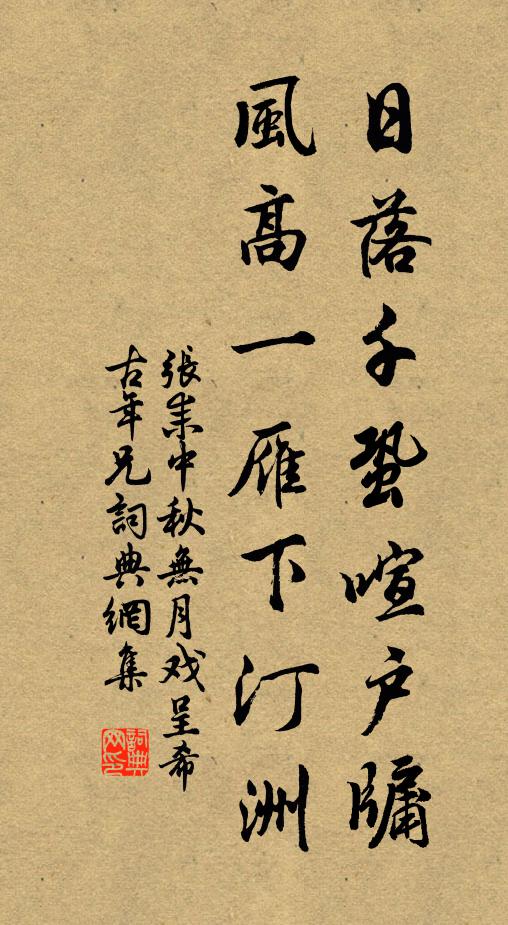 日落千蛩喧户牖
風高一雁下汀洲
張耒中秋無月戏呈希
古年兄詞典網集
詞典网印